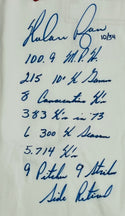 Nolan Ryan
10/34
100.9 M.P.H.
215 10+ K Games
8 Consecutive K's
383 K's in '73
6 300 K Season
5.714 K's
9 Pitches 9 Strikes
Side Retired